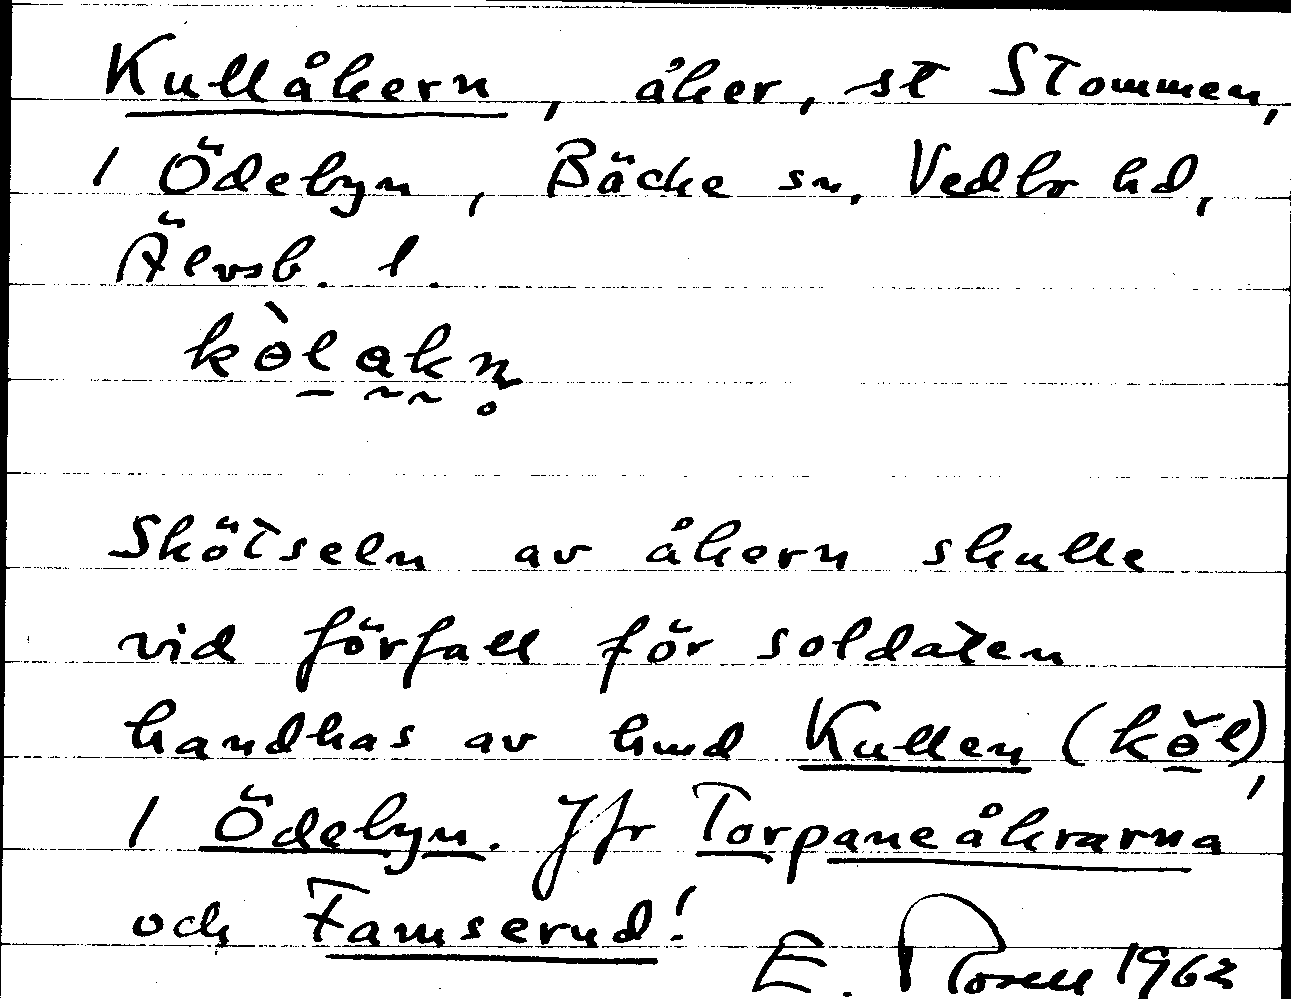 Kullåkern, åker, st Stommen,
1 Ödebyn, Bäcke sn, Vedbo hd,
Älvsb. l.
Skötseln av åkern skulle
vid förfall för soldaten
handhas av hmd Kullen
1 Ödebyn. Jfr Torpaneåkrarna
och Famserud!
E. Rosell 1962